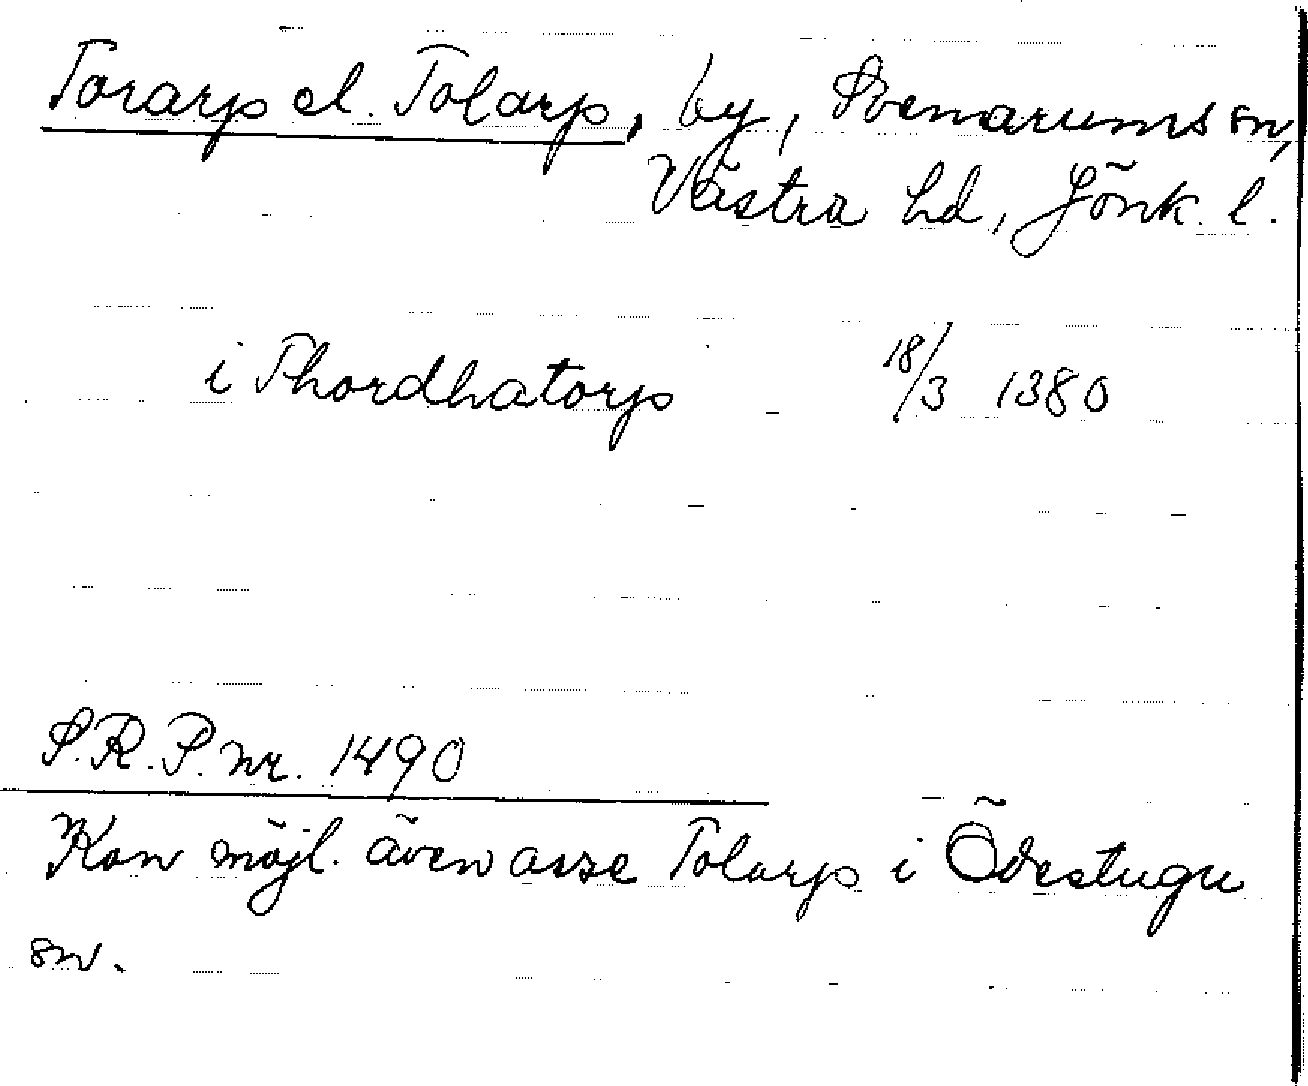 Torarp el. Tolarp, by, Svenarums sn,
Västra hd, Jönk. l.
i Thordhatorp 18/3 1380
S.R.P. nr. 1490
Kan möjl. även avse Tolarp i Ödestugu
sn.